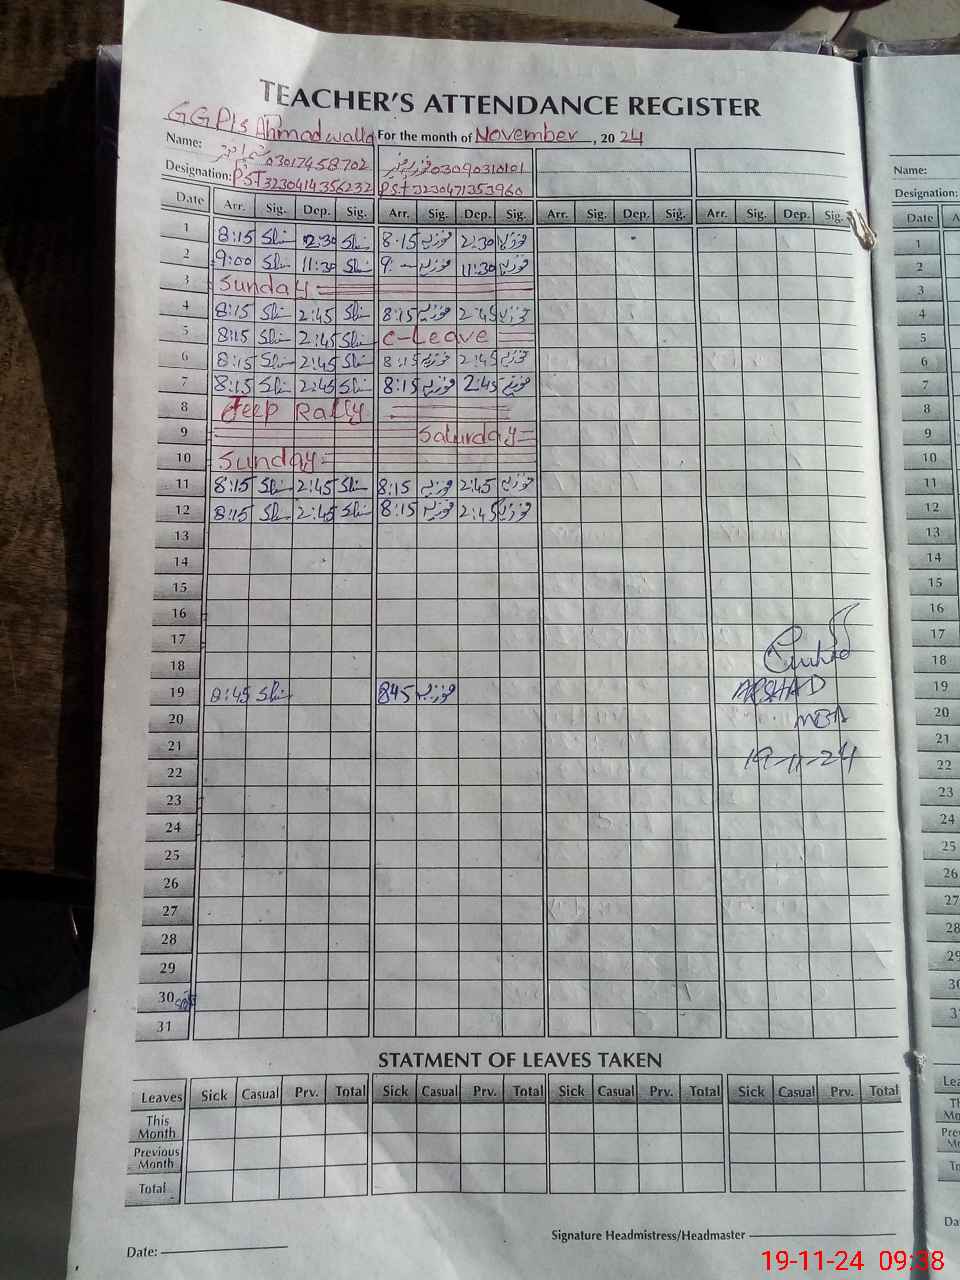 TEACHER'S ATTENDANCE REGISTER
GGPIs Ahmad walla For the month of November, 2024
Name: 03017458702 03090310101 Name:
Designation: PST 3230414356232 PST 3230471353960 Designation:
Date Arr. Sig. Dep. Sig. Arr. Sig. Dep. Sig. Arr. Sig. Dep. Sig. Arr. Sig. Dep. Sig. Date
1 8:15 2:30 8:15 فوزیہ 2:30 فوزیہ 1
2 9:00 11:30 9:— فوزیہ 11:30 فوزیہ 2
3 Sunday 3
4 8:15 2:45 8:15 فوزیہ 2:45 فوزیہ 4
5 8:15 2:45 C-Leave 5
6 8:15 2:45 8:15 فوزیہ 2:45 فوزیہ 6
7 8:15 2:45 8:15 فوزیہ 2:45 فوزیہ 7
8 Jeep Rally 8
9 Saturday 9
10 Sunday 10
11 8:15 2:45 8:15 فوزیہ 2:45 فوزیہ 11
12 8:15 2:45 8:15 فوزیہ 2:45 فوزیہ 12
13 13
14 14
15 15
16 16
17 17
18 18
19 8:45 845 فوزیہ ARSHAD 19
20 MEA 20
21 19-11-24 21
22 22
23 23
24 24
25 25
26 26
27 27
28 28
29 29
30 30
31
STATMENT OF LEAVES TAKEN
Leaves Sick Casual Prv. Total Sick Casual Prv. Total Sick Casual Prv. Total Sick Casual Prv. Total
This Month
Previous Month
Total
Signature Headmistress/Headmaster
Date:
19-11-24 09:38